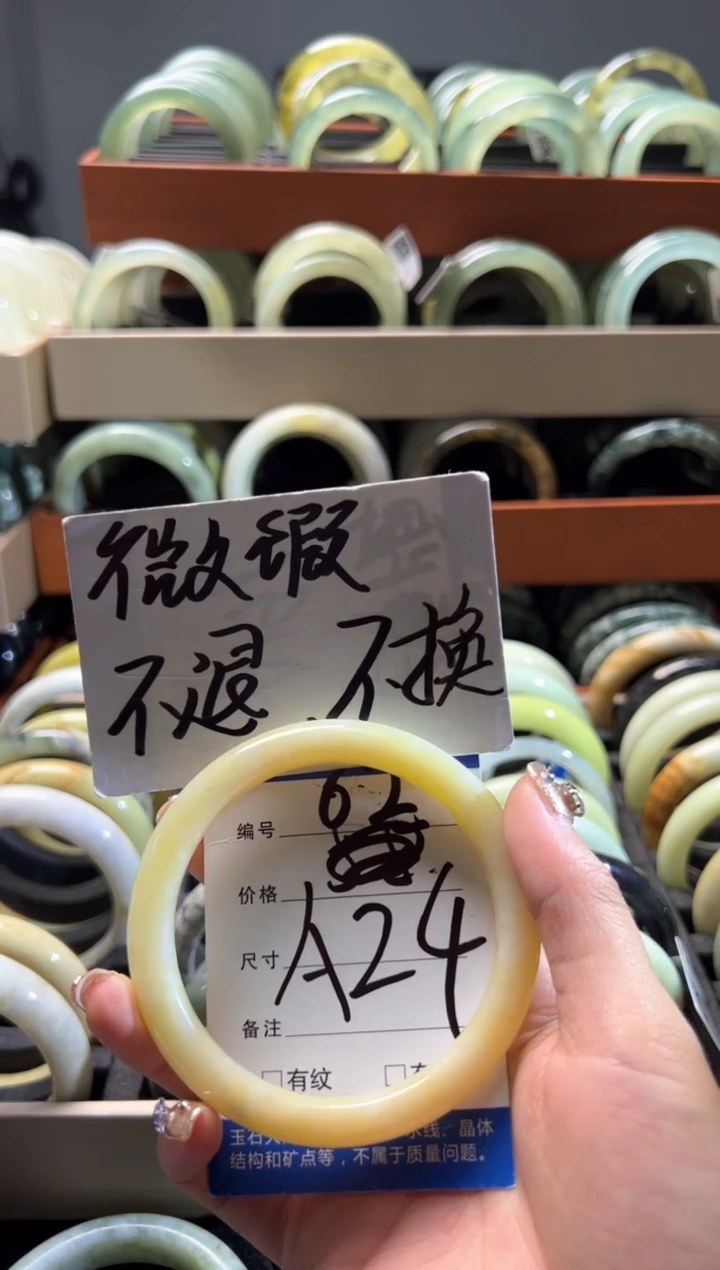 微瑕
不退 不换
61
编号
价格
A24
尺寸
备注
□有纹 □
玉石 水线、晶体
结构和矿点等，不属于质量问题。